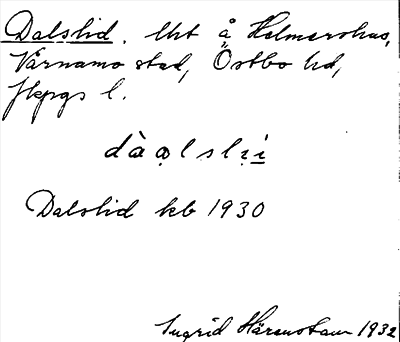 Dalslid. lht å Helmershus,
Värnamo stad, Östbo hd,
Jkpgs l.
dàꬰlslịi
Dalslid kb 1930
Ingrid Härenstam 1932